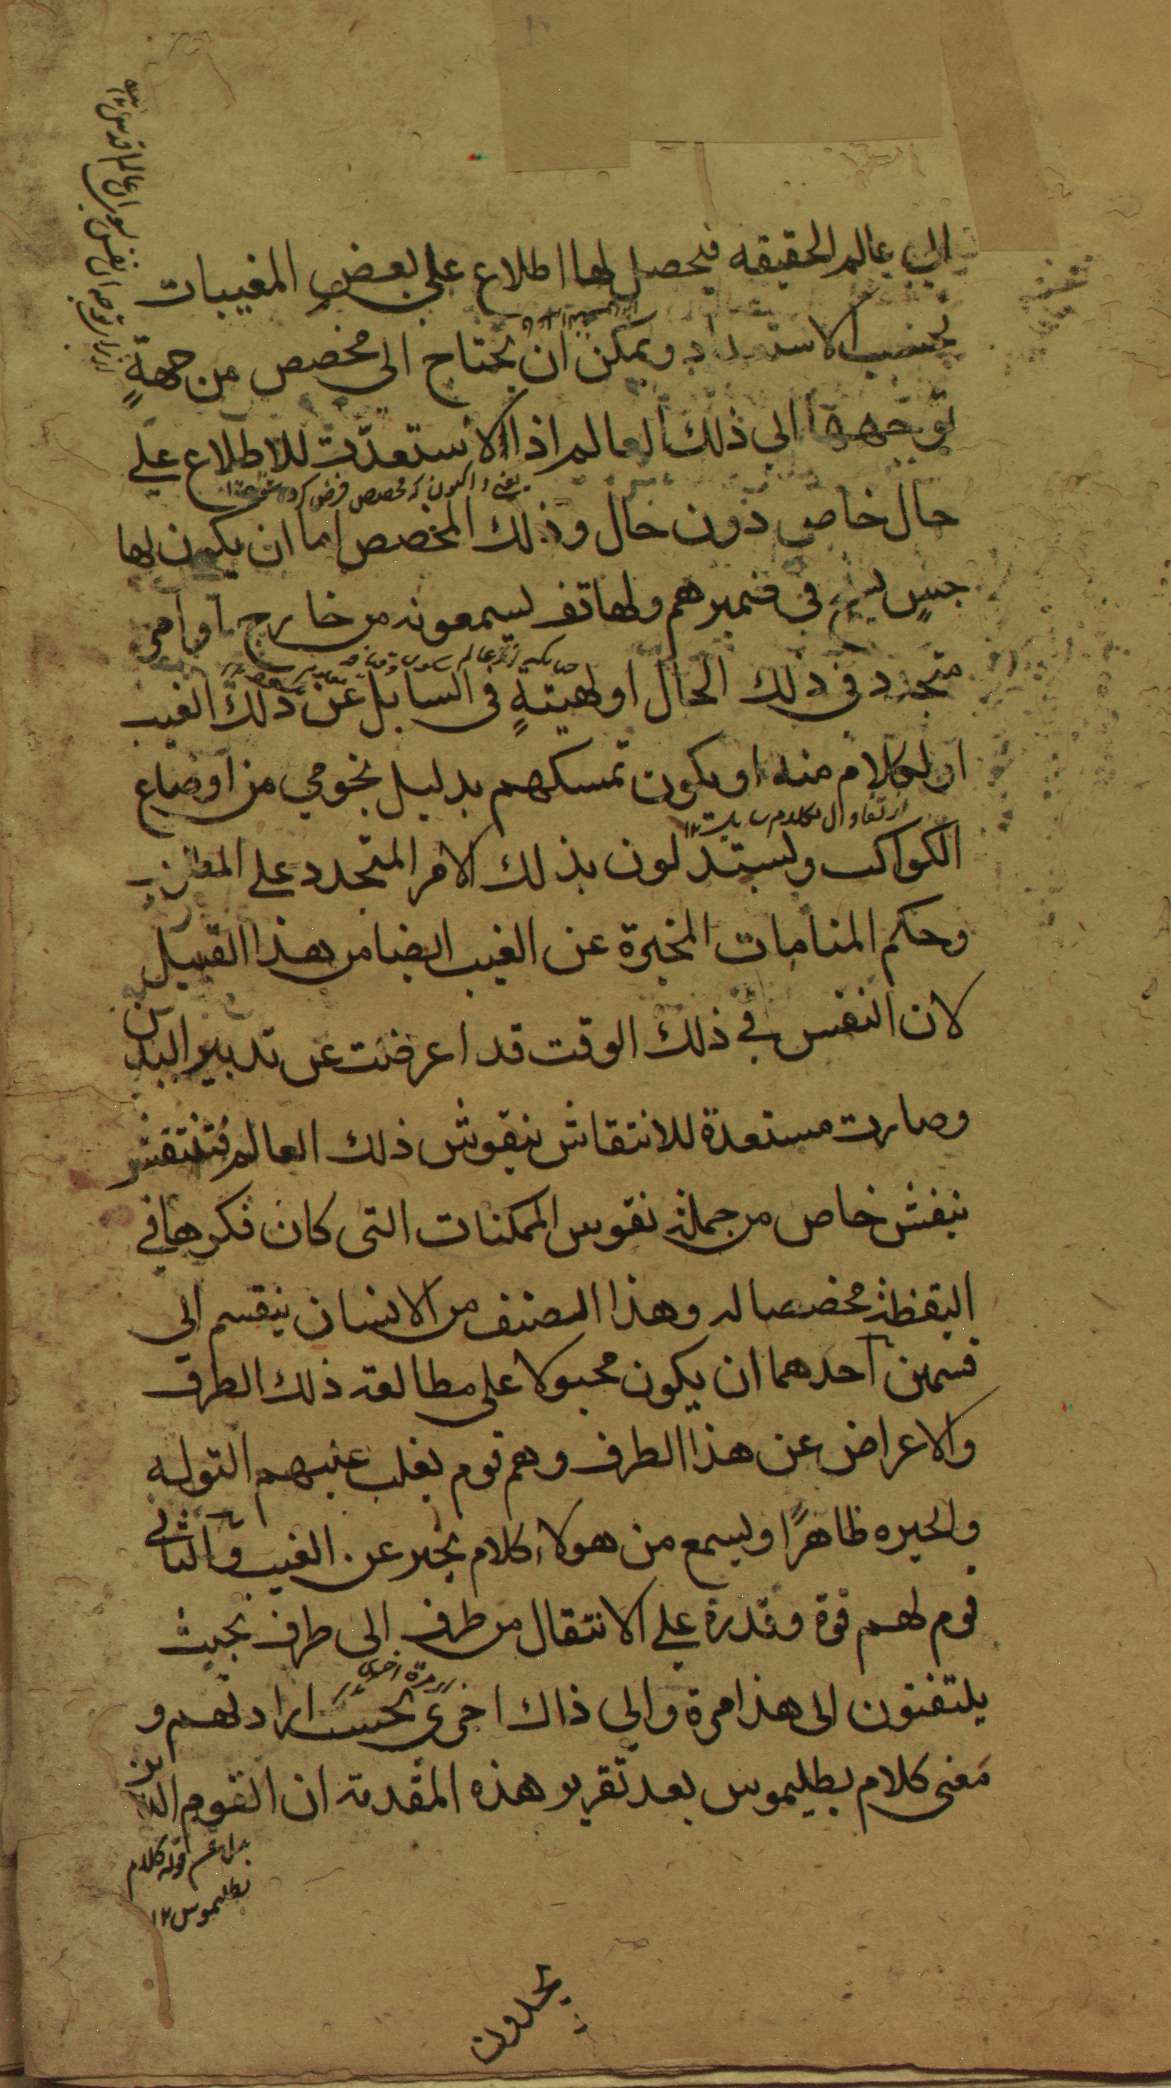 الي عالم الحقيقه فيحصل لها اطلاع علي بعض المغيبات
بحسب الاستعداد ويمكن ان يحتاج الى مخصص من جهةٍ
توجهها الي ذلك العالم اذا الاستعدّت للاطلاع علي
حال خاص دون حال وذلك المخصص اما ان يكون لها
جسٍ في ضميرهم ولهاتف يسمعونه من خارج او امر
متجدد في ذلك الحال او لهيئةٍ في السايل عن ذلك الغيب
او لكلام منه او يكون تمسكهم بدليل نجومي من اوضاع
الكواكب ويستدلون بذلك الامر المتجدد على
وحكم المنامات المخبرة عن الغيب ايضا من هذا القبيل
لان النفس في ذلك الوقت قد اعرضت عن تدبير البدن
وصارت مستعدة للانتقاش بنقوش ذلك العالم فتنتقش
بنقش خاص من جملة نقوس الممكنات التى كان فكرها في
اليقظة مخصصا له وهذا الصنف من الانسان ينقسم الى
قسمين احدهما ان يكون مجبولا على مطالعة ذلك الطرف
والاعراض عن هذا الطرف وهم قوم يغلب عليهم التوله
والحيره ظاهرًا ويسمع من هولاء كلام يخبر عن الغيب والثاني
قوم لهم قوة وقدرة علي الانتقال من طرف الى طرف بحيث
يلتفتون الى هذا مرة والي ذاك اخرى بحسب ارادتهم و
مرة اخرى
معنى كلام بطليموس بعد تقرير هذه المقدمة ان القوم الذين
قوله كلام
بطليموس ١٢
يجدون